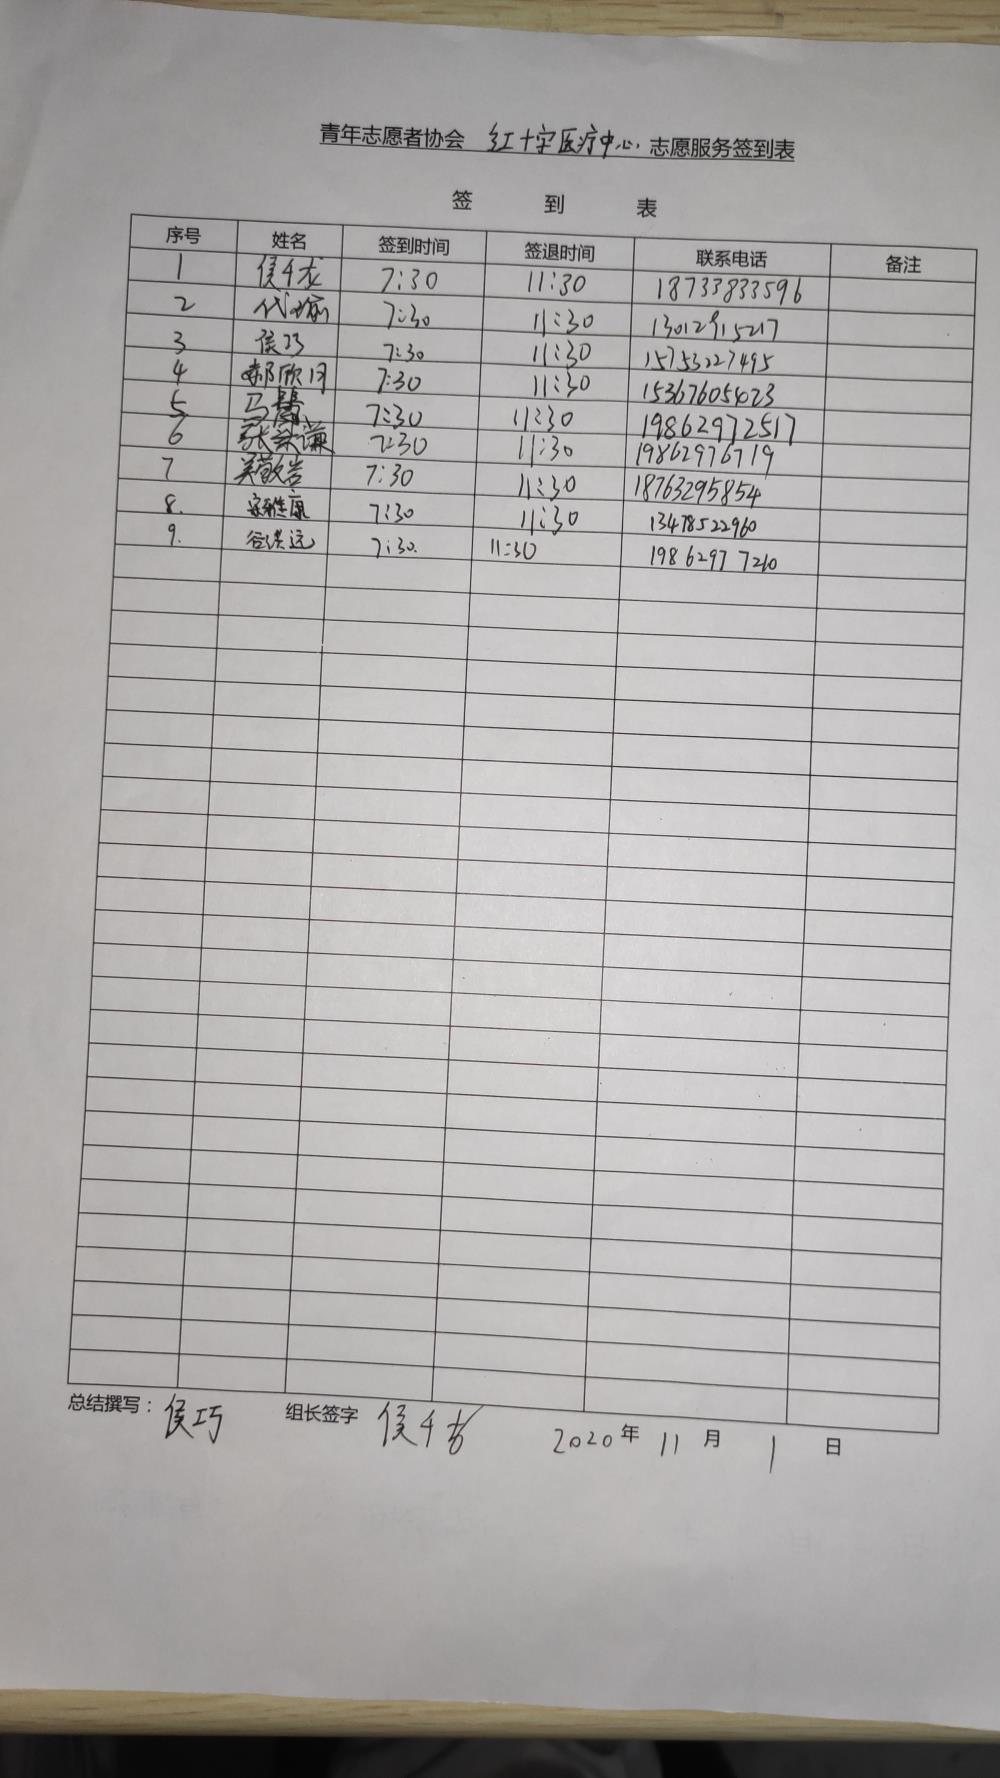 青年志愿者协会 红十字医疗中心 志愿服务签到表
签 到 表
序号 姓名 签到时间 签退时间 联系电话 备注
1 侯千龙 7:30 11:30 18733833596
2 代 7:30 11:30 13012915217
3 侯巧 7:30 11:30 15753227495
4 郝欣月 7:30 11:30 15367605423
5 马 7:30 11:30 19862972517
6 张 谦 7:30 11:30 19862976719
7 吴敬岩 7:30 11:30 18763295854
8. 康 7:30 11:30 13478522960
9. 谷洪远 7:30. 11:30 198 6297 7210
总结撰写： 侯巧 组长签字 侯千龙 2020 年 11 月 1 日